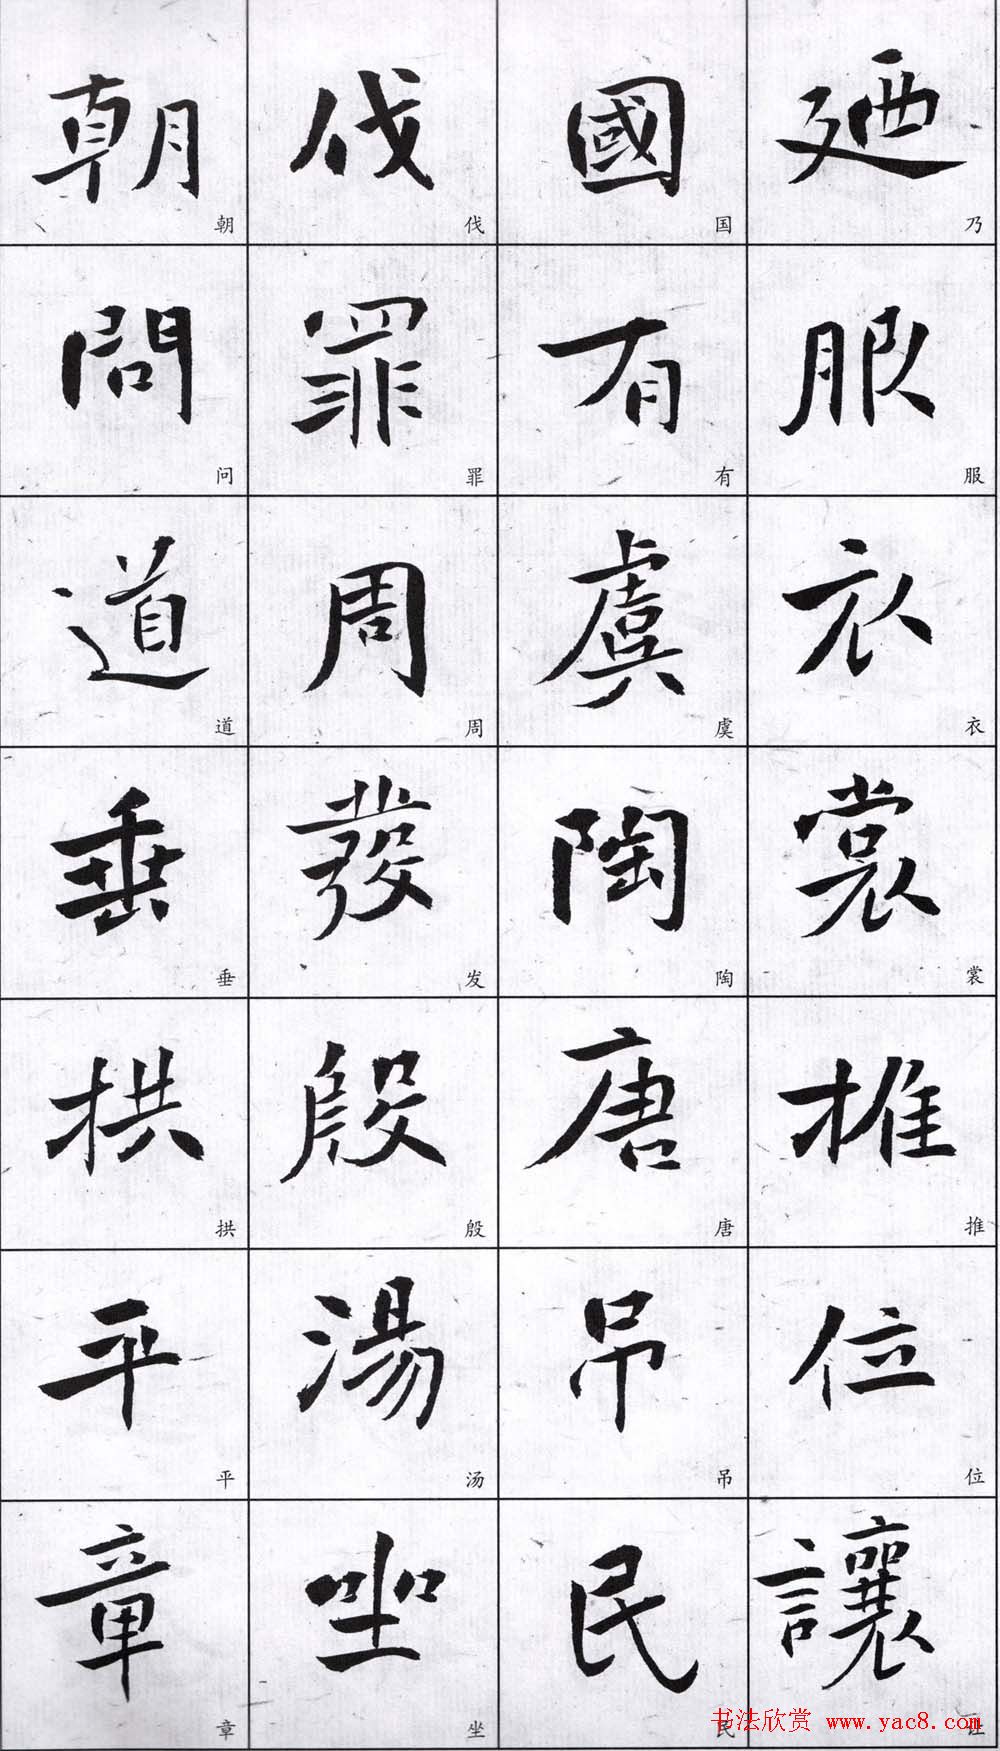 廼服衣裳推位讓
乃服衣裳推位让
國有虞陶唐吊民
国有虞陶唐吊民
伐罪周發殷湯坐
伐罪周发殷汤坐
朝問道垂拱平章
朝问道垂拱平章
书法欣赏 www.yac8.com